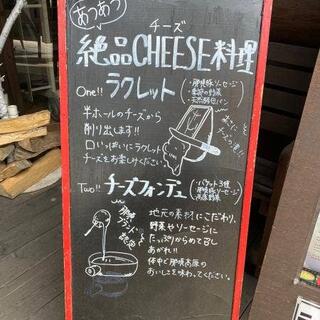 あつあつ
チーズ
絶品CHEESE料理
One!! ラクレット
・那須豚ソーセージ
・季節の野菜
・天然酵母パン
半ホールのチーズから
削り出します!!
口いっぱいにラクレット
チーズをお楽しみください
まさに
チーズの滝!!
Two!! チーズフォンデュ
・バケット3種
・那須豚ソーセージ
・高原野菜
地元の素材にこだわり、
野菜やソーセージに
たっぷりからめて召し
あがれ!!
体中で那須高原の
おいしさを味わってください。